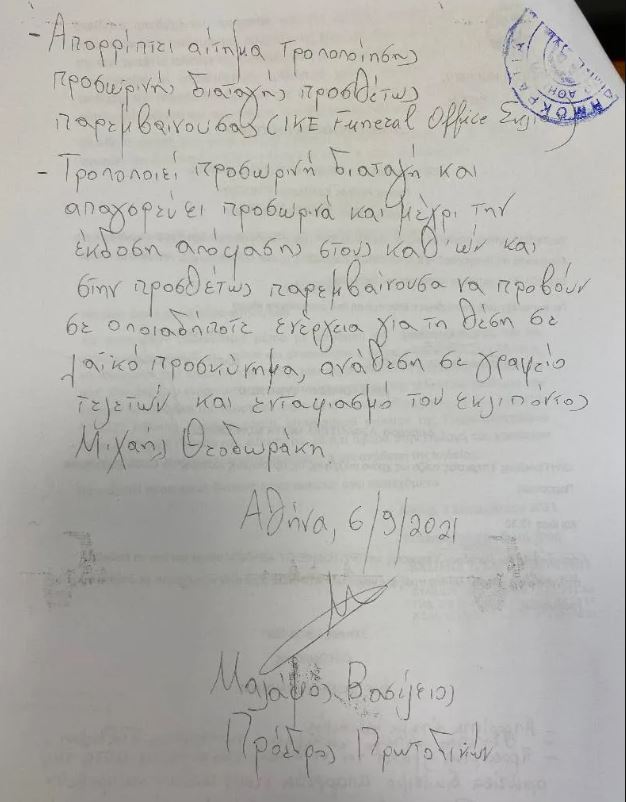 - Απορρίπτει αίτημα τροποποίησης
προσωρινής διαταγής προσθέτως
παρεμβαίνουσας (ΙΚΕ Funeral Office
- Τροποποιεί προσωρινή διαταγή και
απαγορεύει προσωρινά και μέχρι την
έκδοση απόφασης στους καθ'ων και
στην προσθέτως παρεμβαίνουσα να προβούν
σε οποιαδήποτε ενέργεια για τη θέση σε
λαϊκό προσκύνημα, ανάθεση σε γραφείο
τελετών και ενταφιασμό του εκλιπόντος
Μιχαήλ Θεοδωράκη.
Αθήνα, 6/9/2021
Βασίλειος
Πρόεδρος Πρωτοδικών